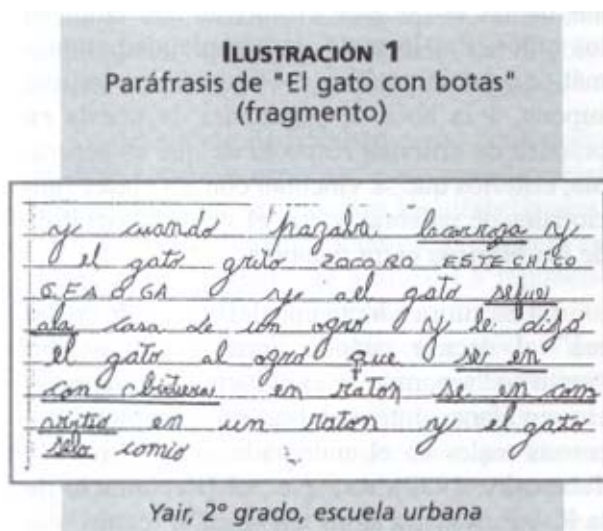 ILUSTRACIÓN 1
Paráfrasis de "El gato con botas"
(fragmento)
y cuando pazaba lacarroza y
el gato grito ZOCORO ESTE CHICO
CEAOGA y ael gato sefue
ala casa de un ogro y le dijo
el gato al ogro que se en
con birtiera en raton se en con
birtio en un raton y el gato
selo comio
Yair, 2° grado, escuela urbana